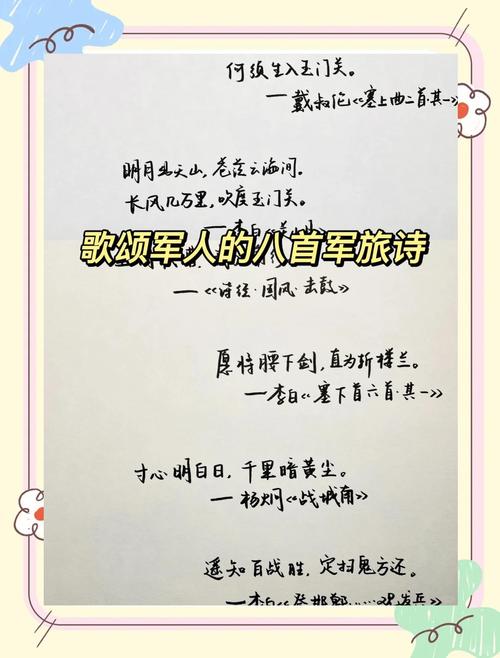 何须生入玉门关。
—戴叔伦《塞上曲二首·其一》
明月出天山,苍茫云海间。
长风几万里,吹度玉门关。
—李白
歌颂军人的八首军旅诗
—《诗经·国风·击鼓》
愿将腰下剑,直为斩楼兰。
—李白《塞下首六首·其一》
寸心明白日,千里暗黄尘。
—杨炯《战城南》
遥知百战胜,定扫鬼方还。
—李白《登邯郸……观发兵》